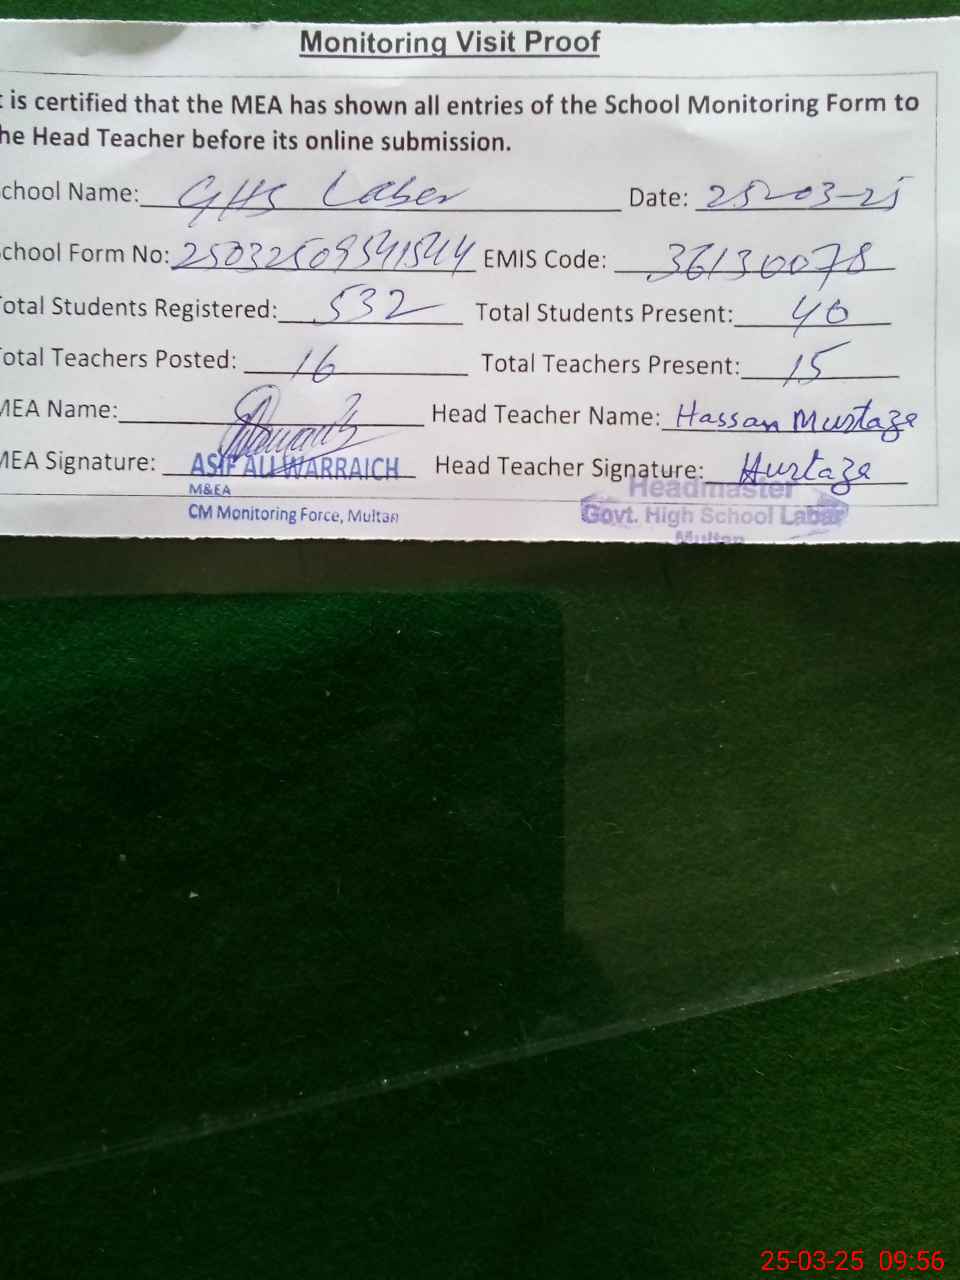 Monitoring Visit Proof
t is certified that the MEA has shown all entries of the School Monitoring Form to
he Head Teacher before its online submission.
chool Name: GHS Laber Date: 25-03-25
chool Form No: 25032509541544 EMIS Code: 36130078
otal Students Registered: 532 Total Students Present: 40
otal Teachers Posted: 16 Total Teachers Present: 15
MEA Name: Head Teacher Name: Hassan Murtaza
MEA Signature: ASIF ALI WARRAICH Head Teacher Signature: Murtaza
M&EA Headmaster
CM Monitoring Force, Multan Govt. High School Labar
Multan
25-03-25 09:56